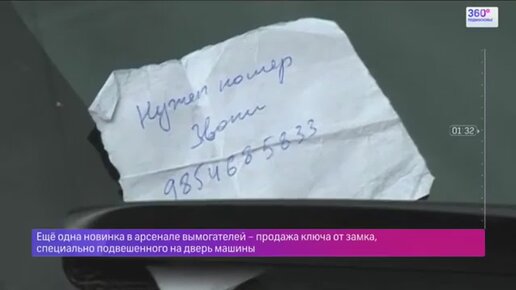 360°
ПОДМОСКОВЬЕ
Нужен номер
Звони
9854685833
01:32
Ещё одна новинка в арсенале вымогателей – продажа ключа от замка,
специально подвешенного на дверь машины